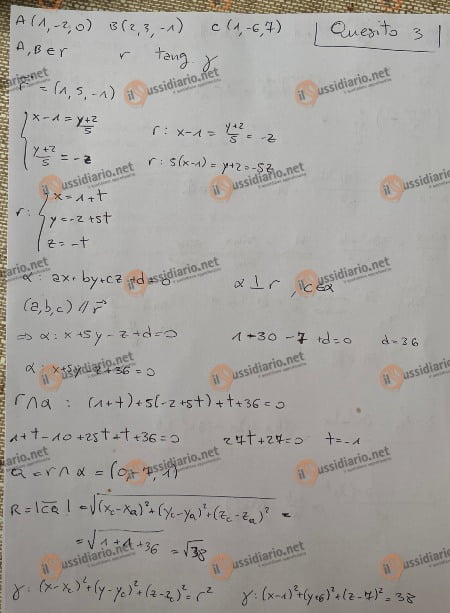 A(1,-2,0) B(2,3,-1) C(1,-6,7) Quesito 3
A,B ∈ r r tang γ
r⃗ = (1,5,-1)
{ x-1 = (y+2)/5 r: x-1 = (y+2)/5 = -z
(y+2)/5 = -z r: 5(x-1) = y+2 = -5z
r: { x=1+t
y=-2+5t
z=-t
α: ax+by+cz+d=0 α ⊥ r, C∈α
(a,b,c) // r⃗
⇒ α: x+5y-z+d=0 1+30-7+d=0 d=36
α: x+5y-z+36=0
r∩α: (1+t)+5(-2+5t)+t+36=0
1+t-10+25t+t+36=0 27t+27=0 t=-1
Q = r∩α = (0,-7,1)
R = |CQ| = √((xc-xQ)²+(yc-yQ)²+(zc-zQ)²) =
= √(1+1+36) = √38
γ: (x-xc)²+(y-yc)²+(z-zc)²=r² γ: (x-1)²+(y+6)²+(z-7)²=38
ilSussidiario.net
il quotidiano approfondito